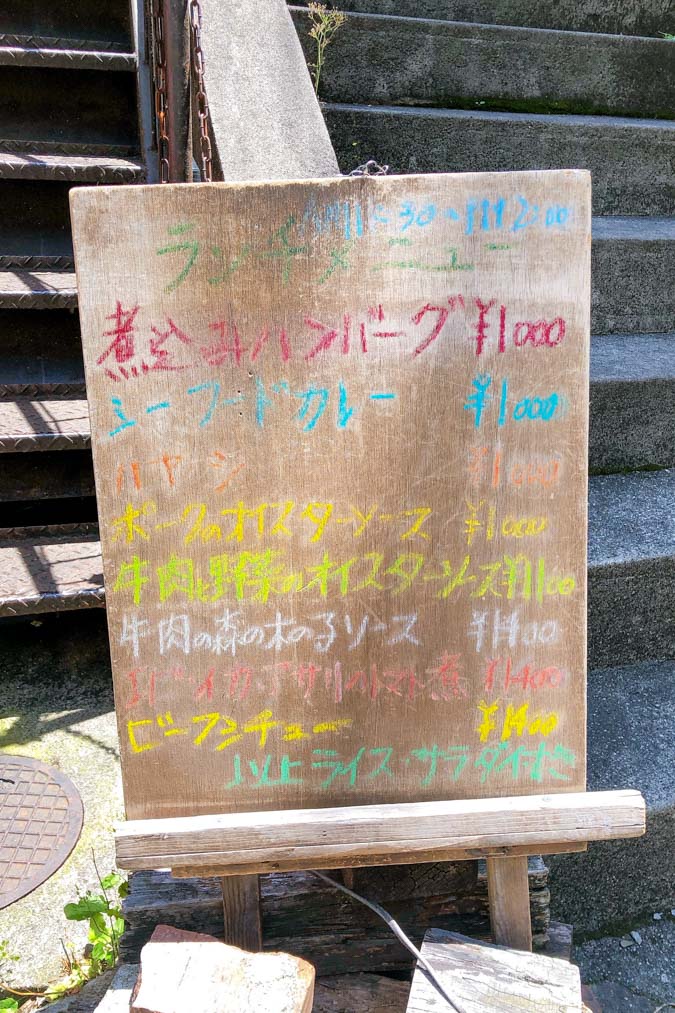 ランチメニュー
煮込みハンバーグ ¥1000
シーフードカレー ¥1000
ハヤシ ¥1000
ポークのオイスターソース ¥1000
牛肉と野菜のオイスターソース ¥1100
牛肉の森の木の子ソース ¥1400
エビ・イカ・アサリのトマト煮 ¥1400
ビーフシチュー ¥1400
以上ライス・サラダ付き